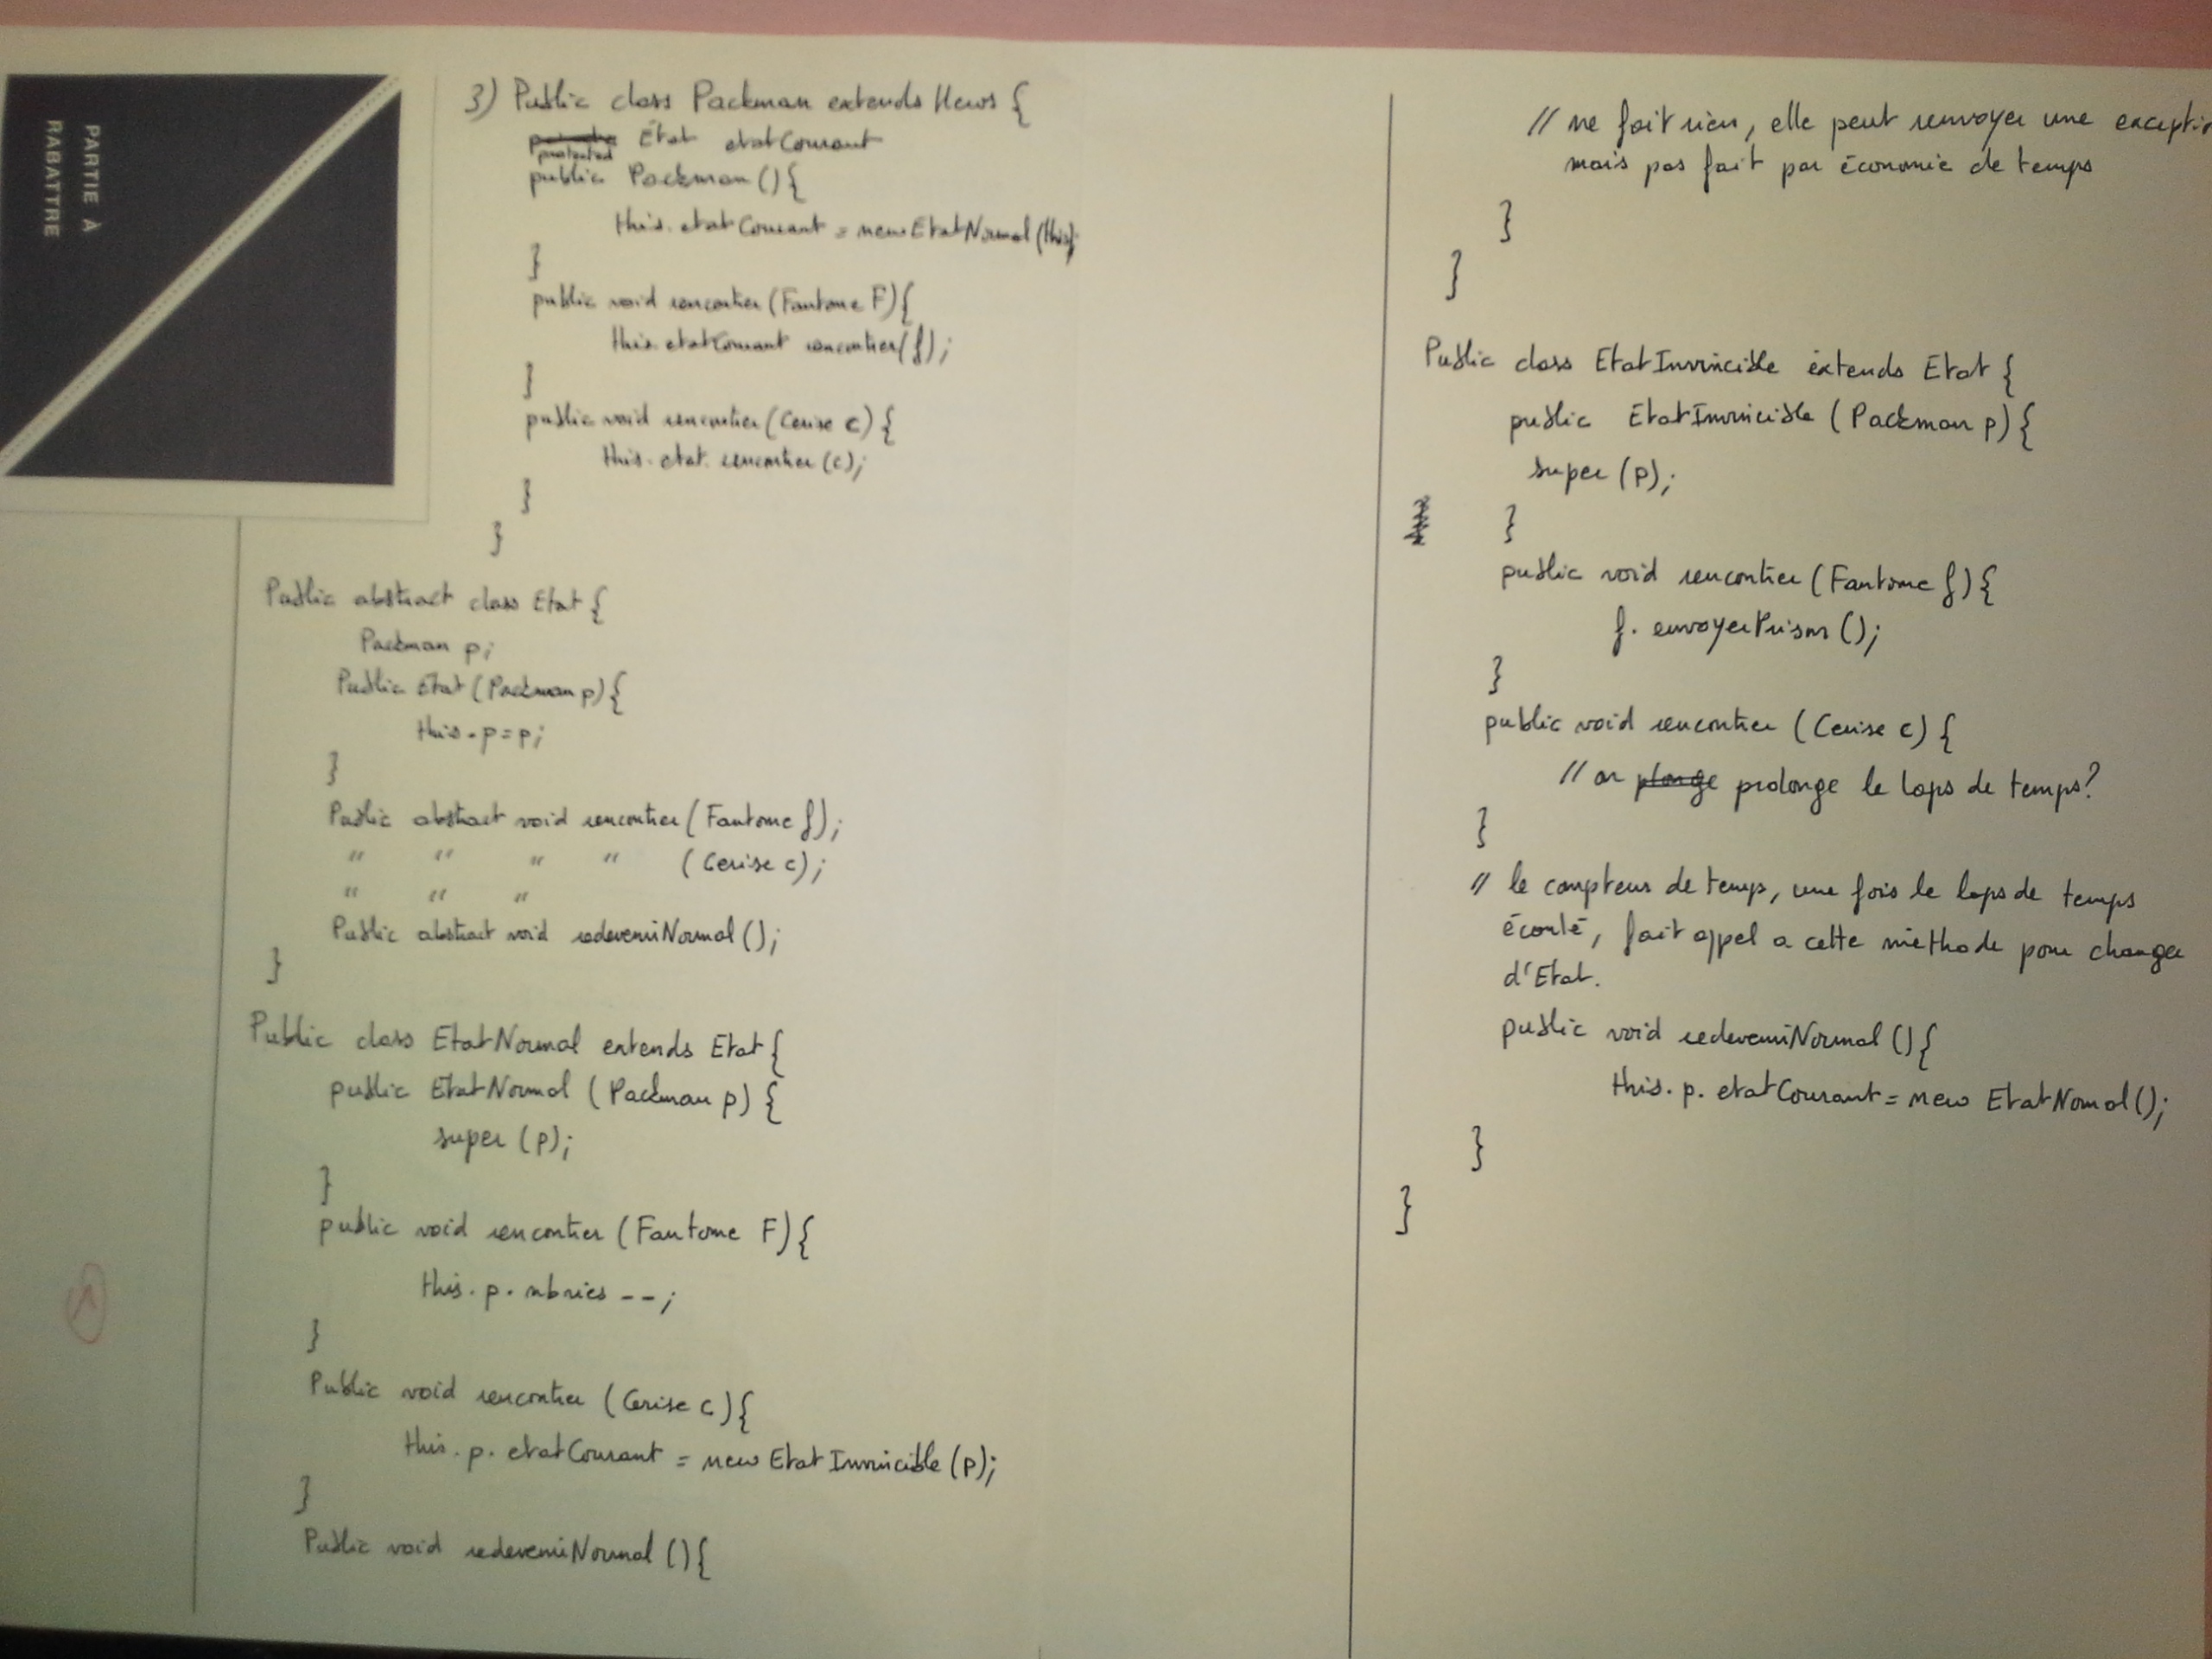 PARTIE À
RABATTRE
3) Public class Packman extends Heros {
protected Etat etatCourant
public Packman(){
this.etatCourant = new EtatNormal(this);
}
public void rencontrer(Fantome F){
this.etatCourant rencontrer(f);
}
public void rencontrer(Cerise c){
this.etat.rencontrer(c);
}
}
Public abstract class Etat{
Packman p;
Public Etat(Packman p){
this.p=p;
}
Public abstract void rencontrer(Fantome f);
" " " " (Cerise c);
" " "
Public abstract void redevenirNormal();
}
Public class EtatNormal extends Etat{
public EtatNormal (Packman p) {
super(p);
}
public void rencontrer (Fantome F){
this.p.nbvies --;
}
Public void rencontrer (Cerise c){
this.p.etatCourant = new EtatInvincible(p);
}
Public void redevenirNormal(){
// ne fait rien, elle peut renvoyer une exceptio
mais pas fait par économie de temps
}
}
Public class EtatInvincible extends Etat {
public EtatInvincible (Packman p){
super(p);
}
public void rencontrer (Fantome f){
f.envoyerPrison();
}
public void rencontrer (Cerise c){
// on plonge prolonge le laps de temps?
}
// le compteur de temp, une fois le laps de temps
écoulé, fait appel a cette méthode pour changer
d'Etat.
public void redevenirNormal(){
this.p.etatCourant = new EtatNormal();
}
}